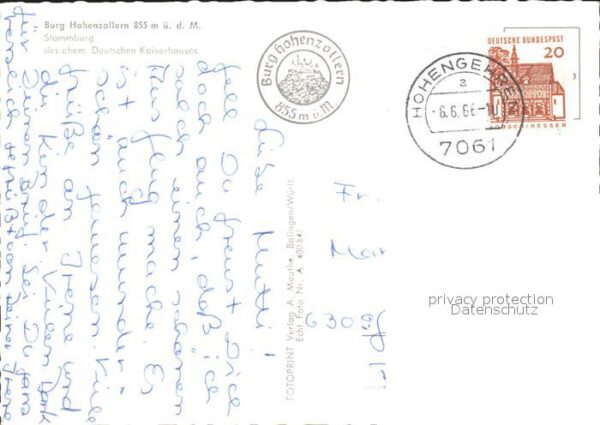 Burg Hohenzollern 855 m ü. d. M.
Stammburg
des ehem. Deutschen Kaiserhauses
Burg Hohenzollern
855 m ü. M.
DEUTSCHE BUNDESPOST
20
LORSCH/HESSEN
HOHENGEHREN
a
-6.6.66-10
7061
Liebe Mutti!
Gell Du freust Dich
doch auch, daß ich
mal einen schönen
Ausflug mache. Es
ist auch wunder-
schön
Grüße an Irene und
die Kinder. Dank
für Deinen Brief. Sei Du ganz
herzlich gegrüßt von Deiner Irene
FOTOPRINT Verlag A. Mauthe, Balingen/Württ.
Echt Foto Nr. A 400 641
Fr.
Mar
630
privacy protection
Datenschutz